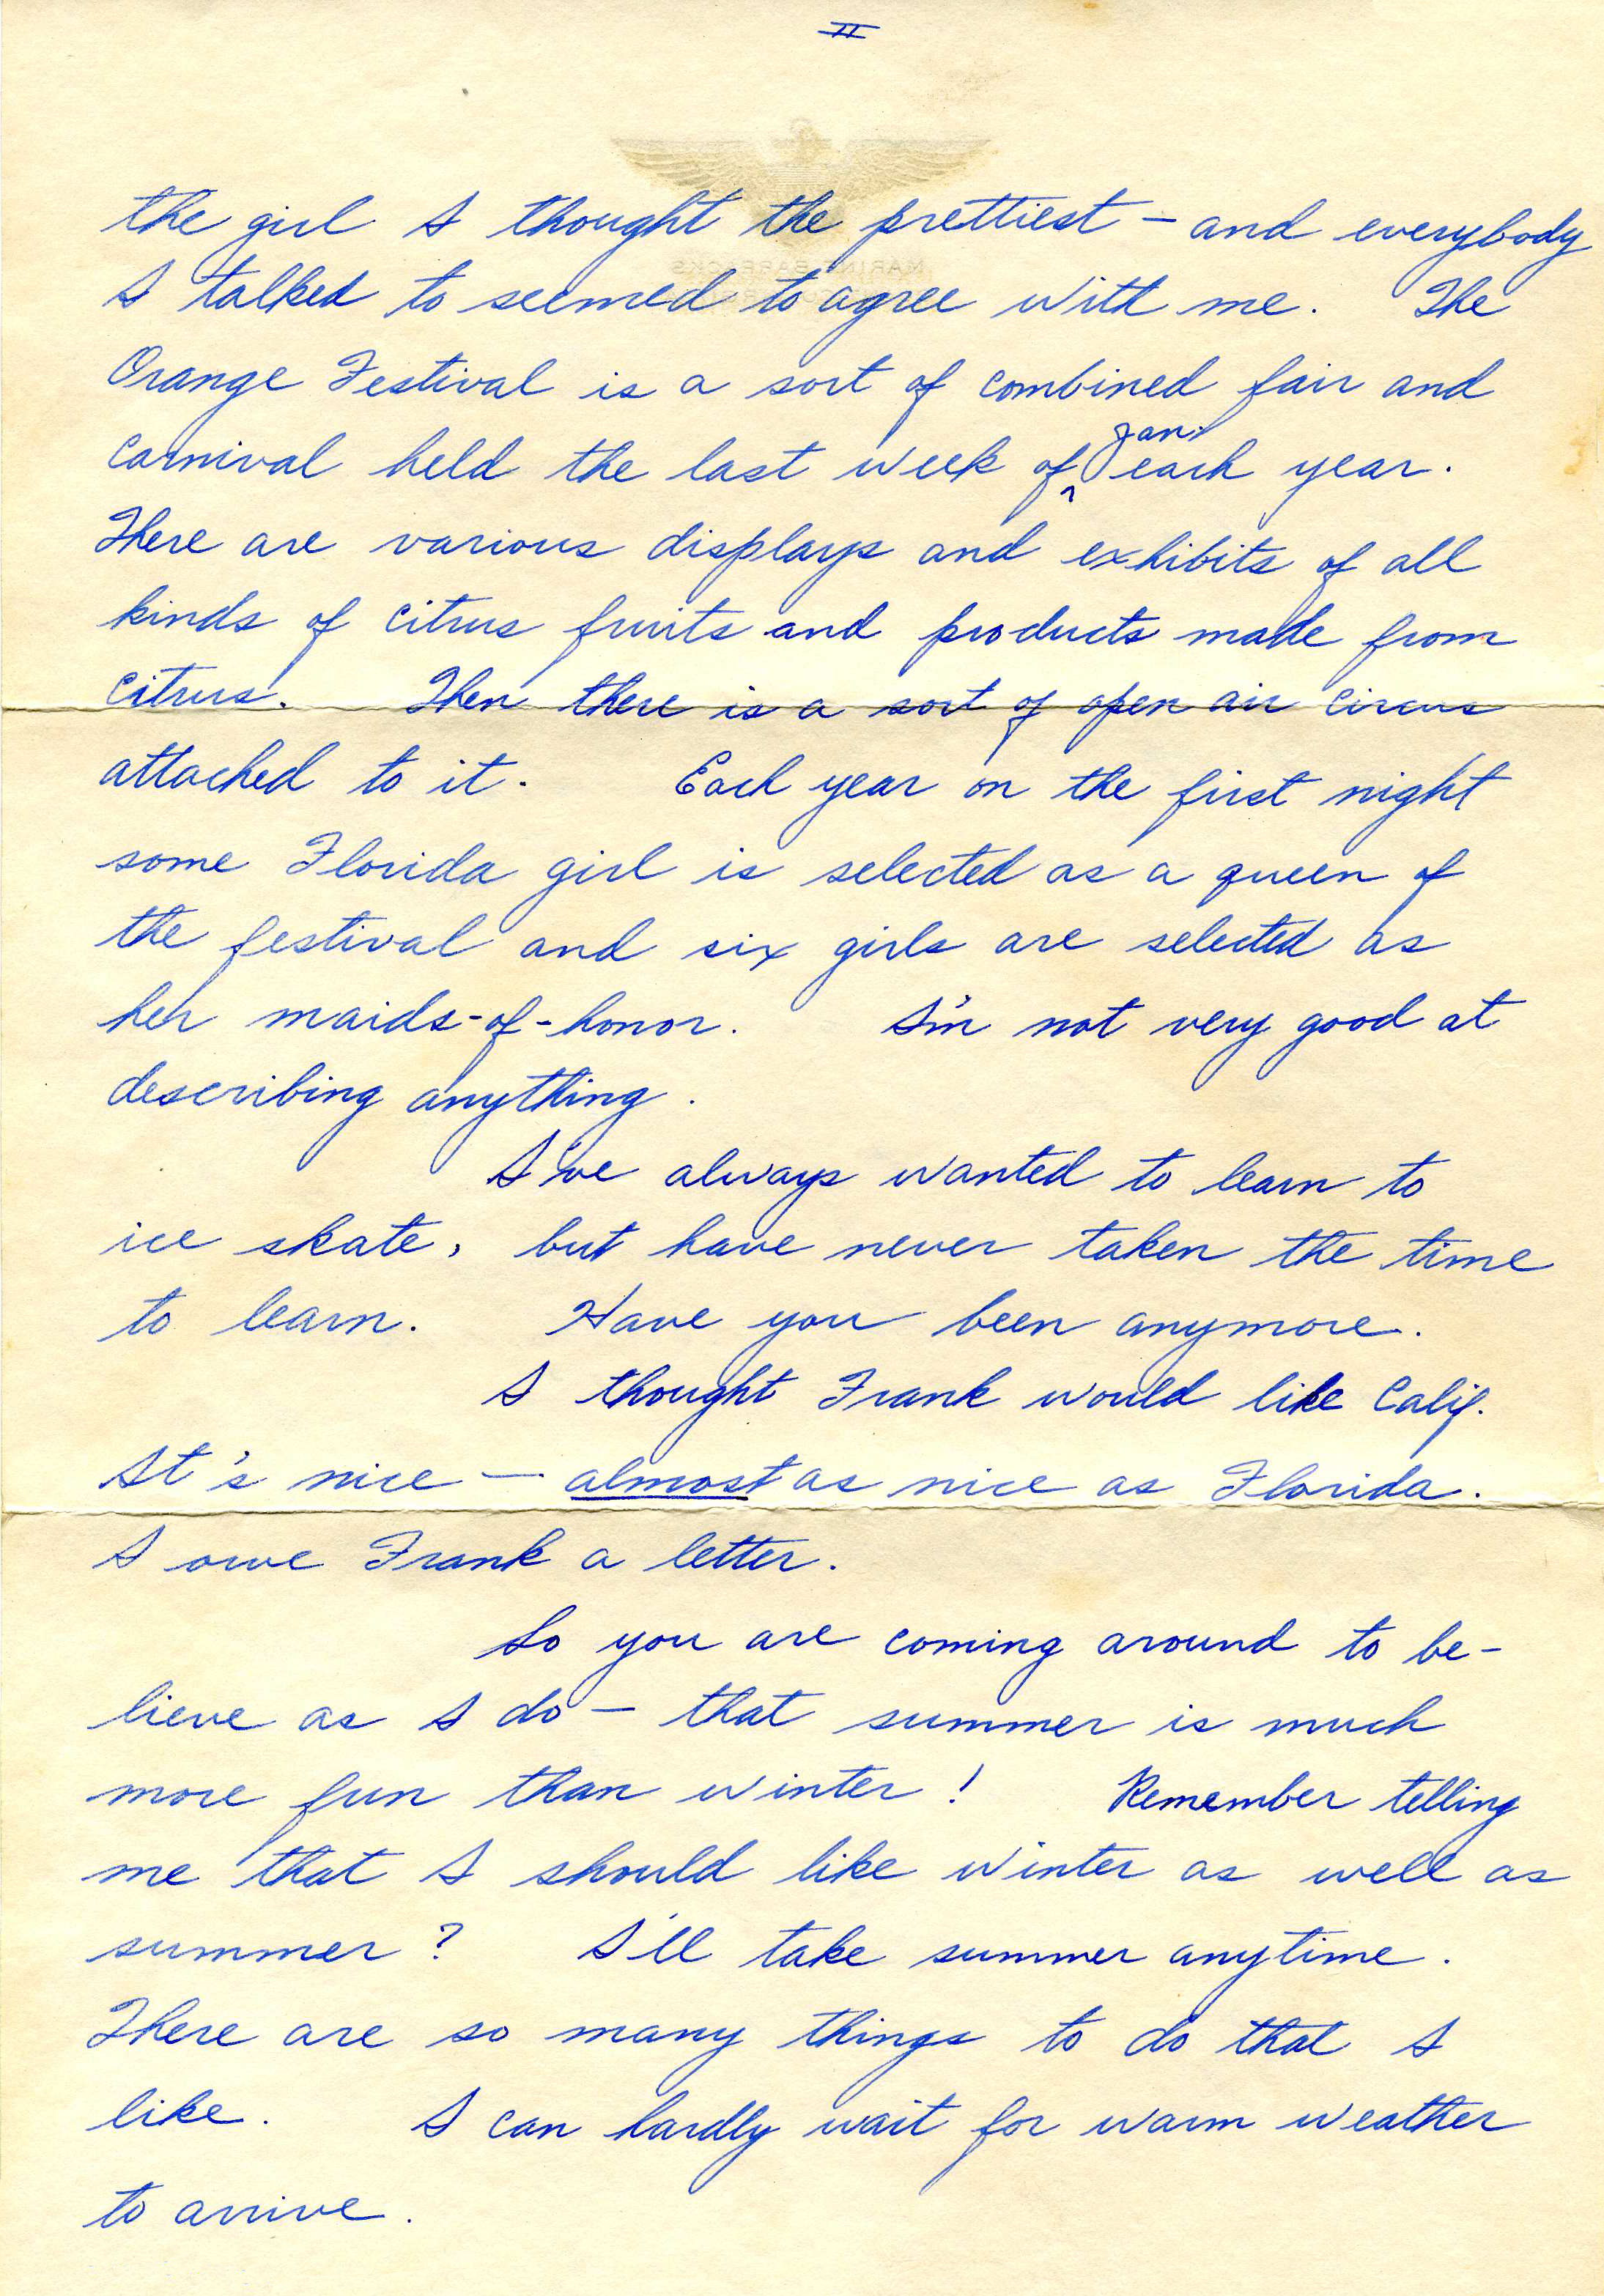 II
MARINE BARRACKS
the girl I thought the prettiest — and everybody
I talked to seemed to agree with me. The
Orange Festival is a sort of combined fair and
carnival held the last week of Jan. each year.
There are various displays and exhibits of all
kinds of citrus fruits and products made from
citrus. Then there is a sort of open air circus
attached to it. Each year on the first night
some Florida girl is selected as a queen of
the festival and six girls are selected as
her maids-of-honor. I'm not very good at
describing anything.
I've always wanted to learn to
ice skate, but have never taken the time
to learn. Have you been anymore.
I thought Frank would like Calif.
It's nice — almost as nice as Florida.
I owe Frank a letter.
So you are coming around to be-
lieve as I do — that summer is much
more fun than winter! Remember telling
me that I should like winter as well as
summer? I'll take summer anytime.
There are so many things to do that I
like. I can hardly wait for warm weather
to arrive.